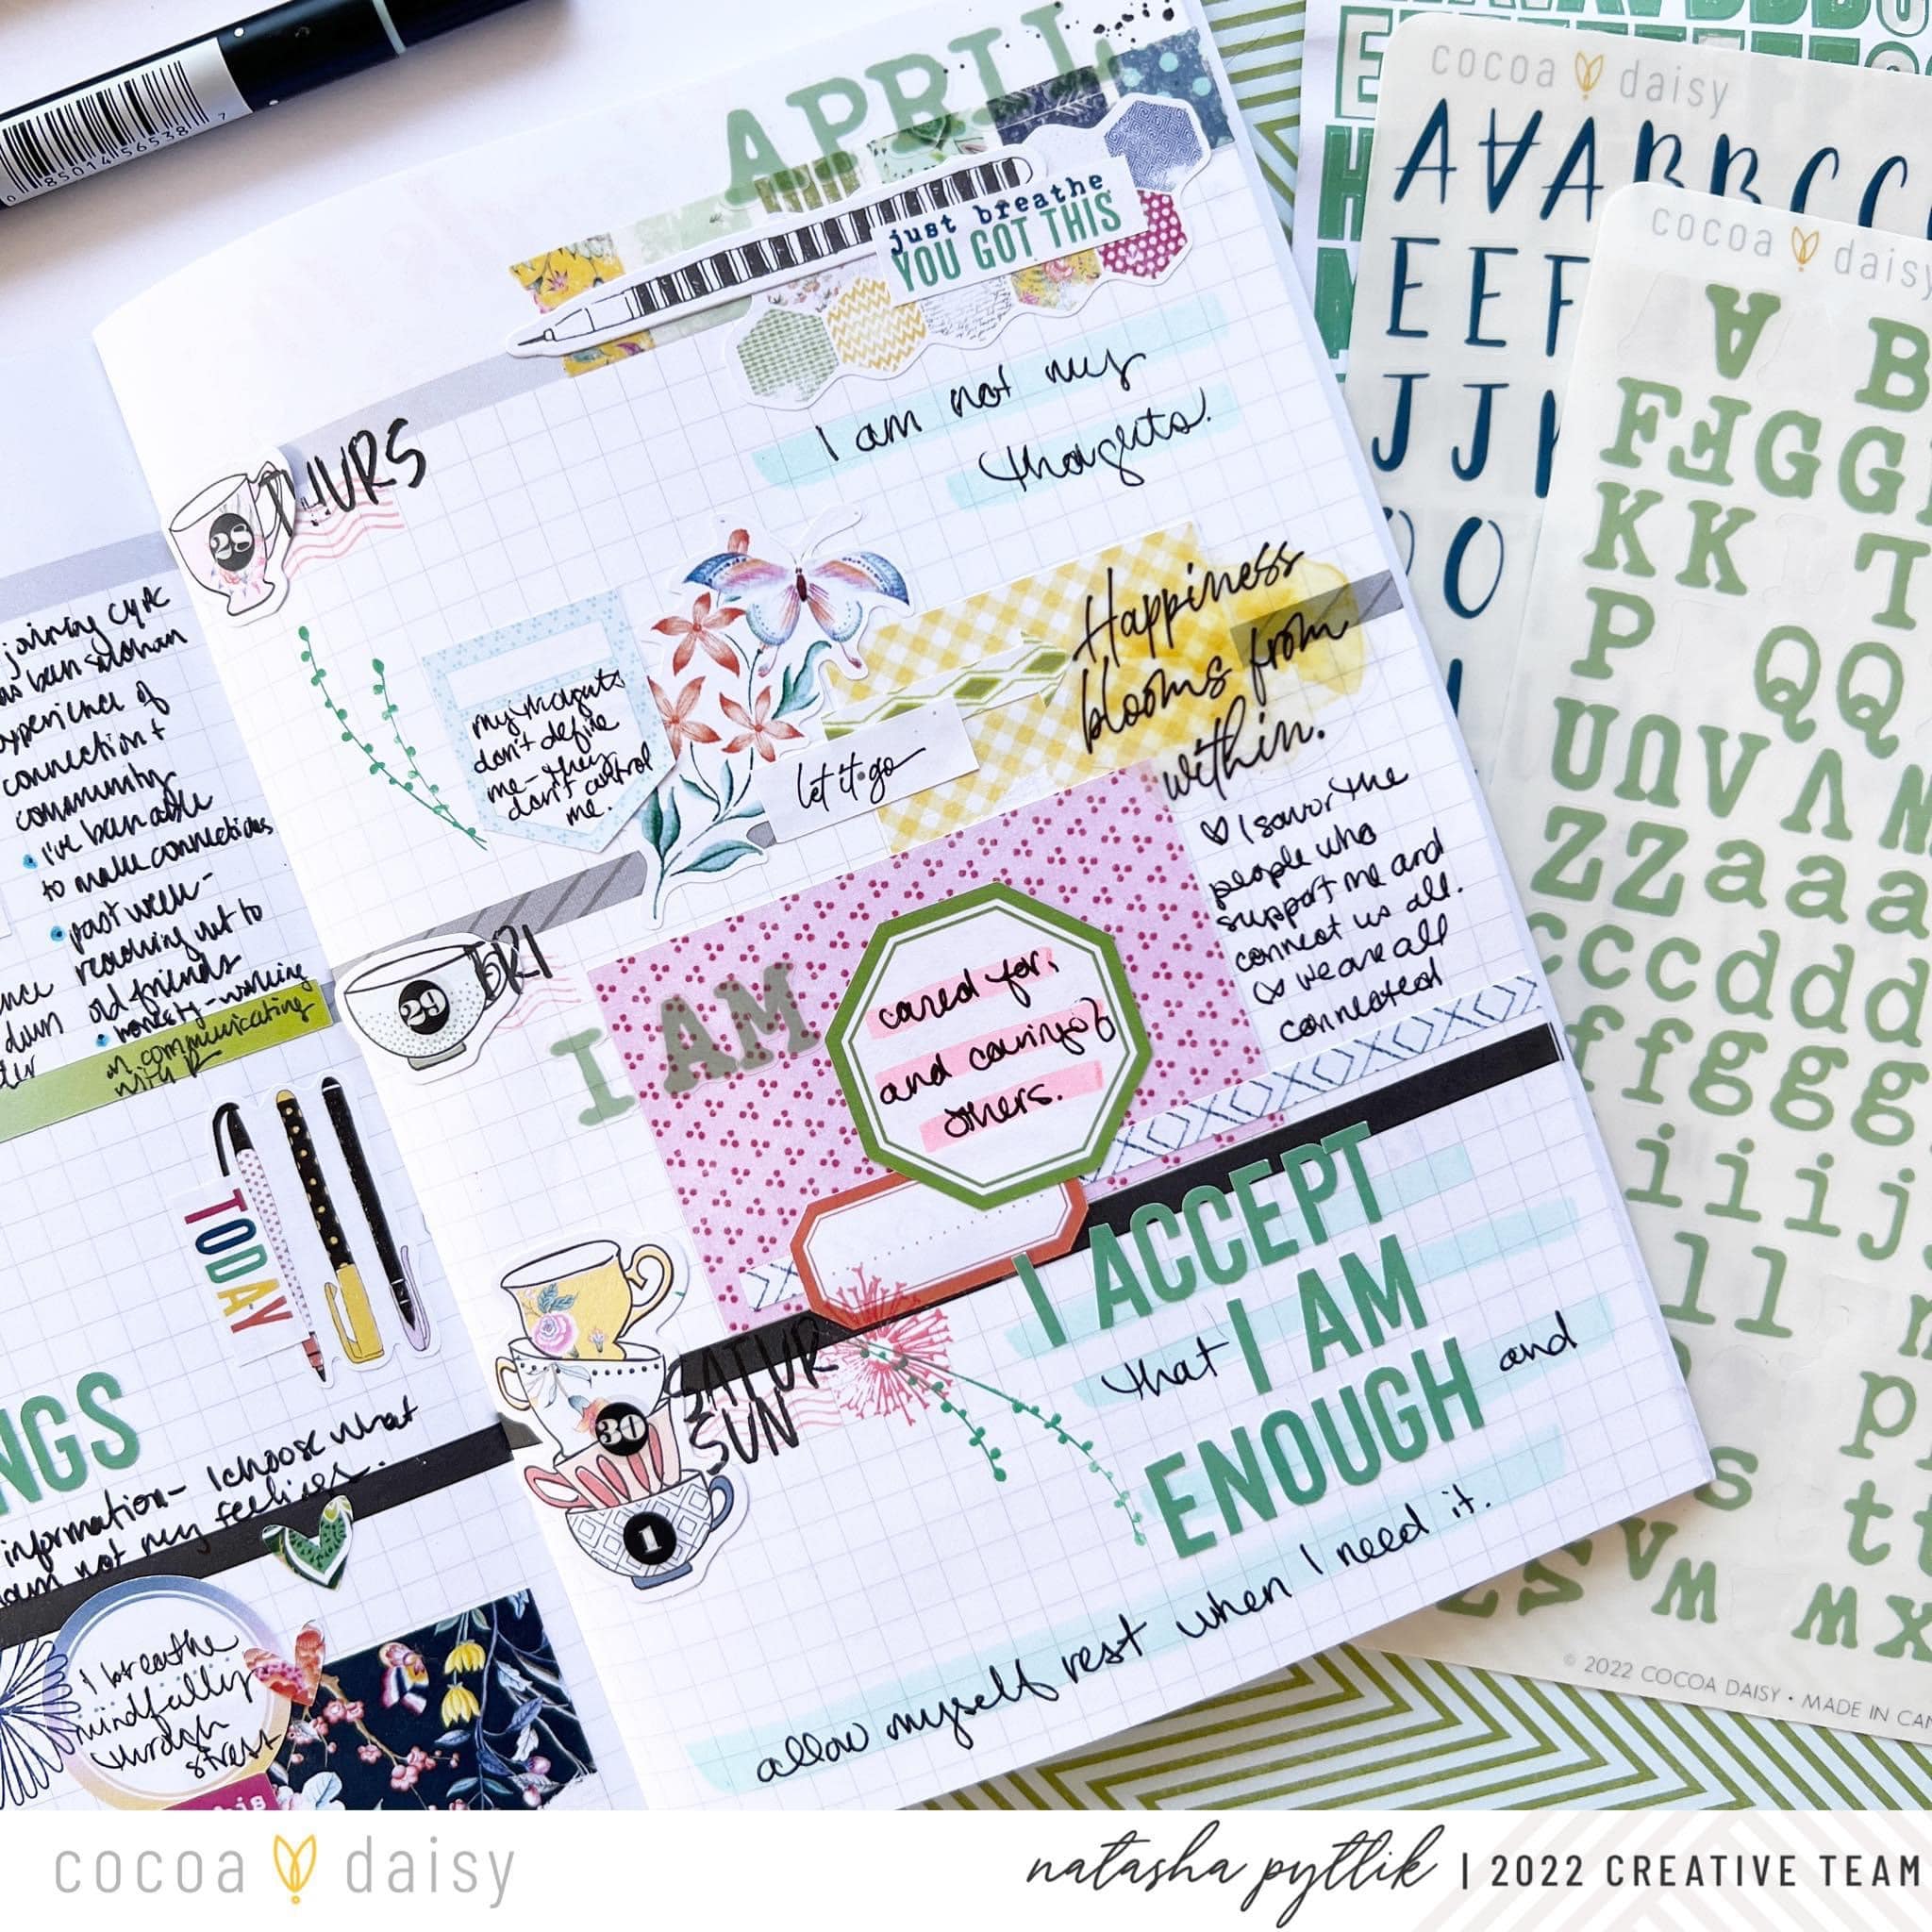 0 85014 56538 7
APRIL
just breathe
YOU GOT THIS
I am not my
thoughts.
THURS
28
my thoughts
don't define
me - they
don't control
me.
let it go
Happiness
blooms from
within.
♡ I savor the
people who
support me and
connect us all.
♡ we are all
connected
FRI
29
I AM
cared for,
and caring of
others.
SATUR
SUN
30
1
I ACCEPT
that I AM
ENOUGH and
allow myself rest when I need it.
joining
as been
experience of
connection +
community
• I've been able
to make connections
• past week -
reaching out to
old friends
• honesty - working
on communicating
with R
ence
down
TODAY
NGS
information - I choose what
am not my feelings.
I breathe
mindfully
through
stress
cocoa daisy
A A A B B C C
E E F
J J
O
cocoa daisy
A B
F F G G
K K T
P Q Q
U U V V
Z Z a a a
c c c d d d
f f g g g
i i i j
l l
p
s t t
v w w x
© 2022 COCOA DAISY • MADE IN CAN
cocoa daisy
natasha pyttlik | 2022 CREATIVE TEAM